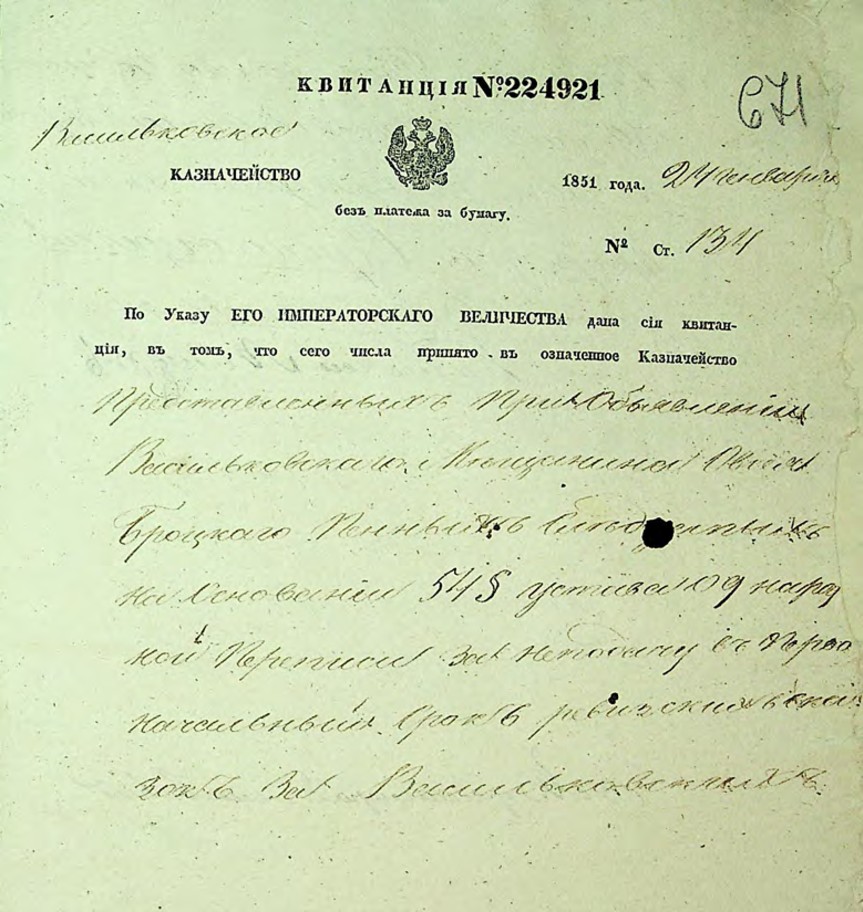 КВИТАНЦІЯ №224921
671
Васильковское
КАЗНАЧЕЙСТВО
1851 года. 24 генваря
безъ платежа за бумагу.
№ Ст. 134
По Указу ЕГО ИМПЕРАТОРСКАГО ВЕЛИЧЕСТВА дана сія квитан-
ція, въ томъ, что сего числа принято въ означенное Казначейство
Представленныхъ При Объявленіи
Васильковскаго Мѣщанина
Броцкаго Пенныхъ
на Основаніи 54 § устава о 9 народ
ной Переписи за неподачу въ Перво
начальный Срокъ ревизскихъ ска
зокъ За Васильковскихъ